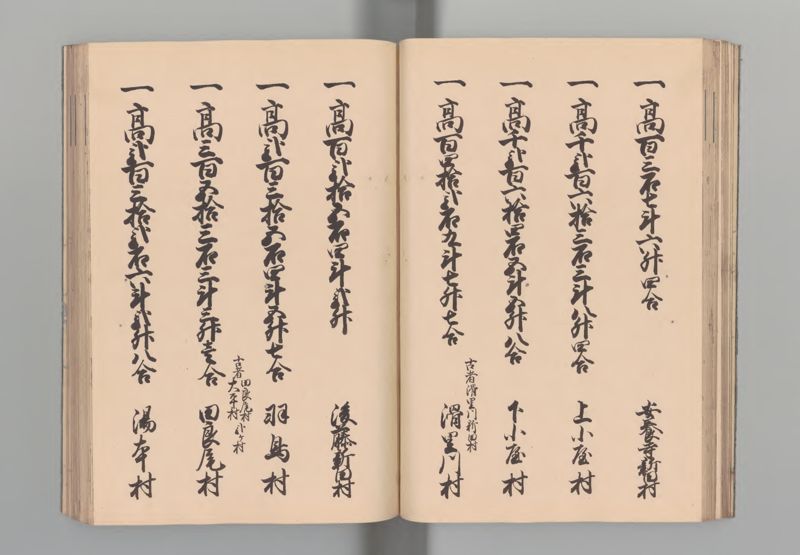 一高百三石七斗六升四合 安養寺新田村
一高千弐百六拾三石三斗八升四合 上小屋村
一高千弐百六拾四石五斗五升八合 下小屋村
古者滑里門新田村
一高百四拾弐石九斗七升七合 滑里門村
一高百弐拾五石四斗弐升 後藤新田村
一高弐百三拾五石四斗五升七合 羽鳥村
古者田良尾村
大平村
一高三百五拾三石三斗三升壱合 田良尾村
一高弐百三拾弐石六斗弐升八合 湯本村